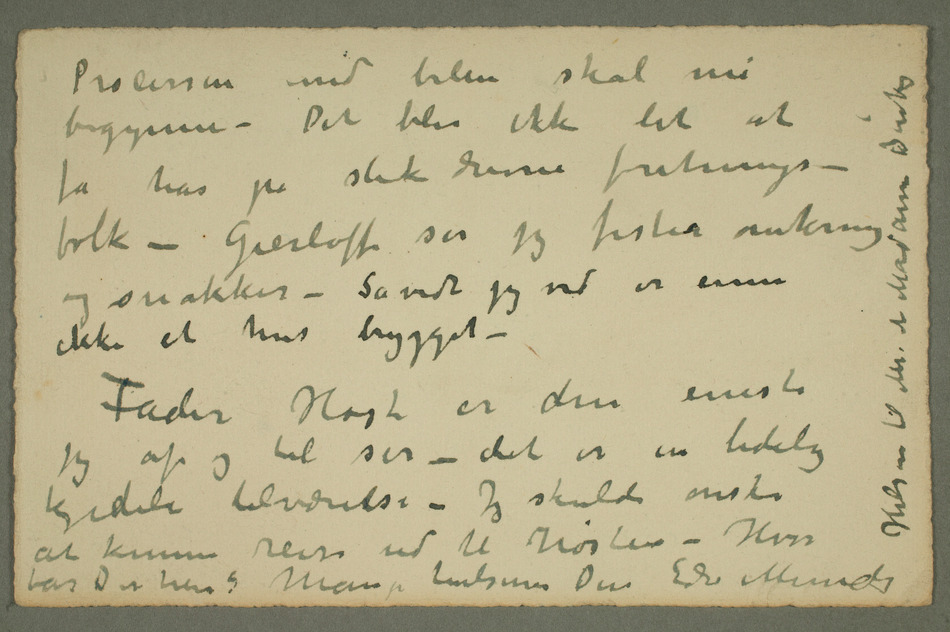 Processen med bilen skal nu
begynne – Det blir ikke let at
få has på slik drevne fretnings–
folk – Gierløff ser jeg fester omkring
og snakker – Såvidt jeg ved er ennu
ikke et hus bygget –
Fader Høst er den eneste
jeg af og til ser – det er en ledelig
kjedelig tilværelse – Jg skulde ønske
at kunne reise ud til Høsten – Hvor
tar Du hen? Mange hilsener Din Edv Munch
Hilsen til Mr. e Madam